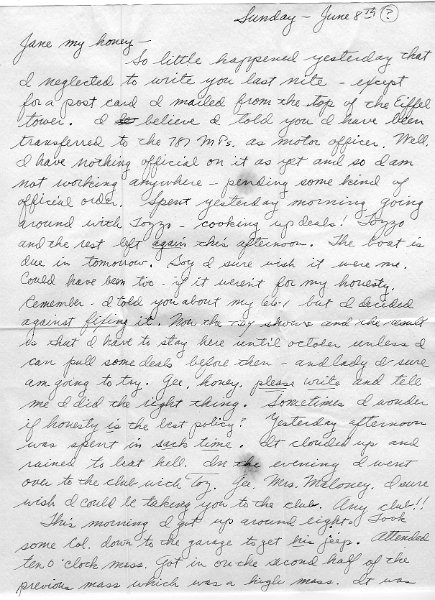 Sunday - June 8th (?)
Jane my honey -
So little happened yesterday that
I neglected to write you last nite - except
for a post card I mailed from the top of the Eiffel
tower. I believe I told you I have been
transferred to the 787 M.P.s. as motor officer. Well,
I have nothing official on it as yet and so I am
not working anywhere - pending some kind of
official order. Spent yesterday morning going
around with Tozzo - cooking up deals! Tozzo
and the rest left again this afternoon. The boat is
due in tomorrow. Boy I sure wish it were me.
Could have been too - if it weren't for my honesty.
Remember - I told you about my but I decided
against fixing it. Now the shows and the result
is that I have to stay here until october unless I
can pull some deals before then - and lady I sure
am going to try. Gee, honey, please write and tell
me I did the right thing. Sometimes I wonder
if honesty is the best policy? Yesterday afternoon
was spent in sack time. It clouded up and
rained to beat hell. In the evening I went
over to the club with Toz. Gee, Mrs. Maloney, I sure
wish I could be taking you to the club. Any club!!
This morning I got up around eight. Took
some Col. down to the garage to get his jeep. Attended
ten o'clock mass. Got in on the second half of the
previous mass which was a high mass. It was